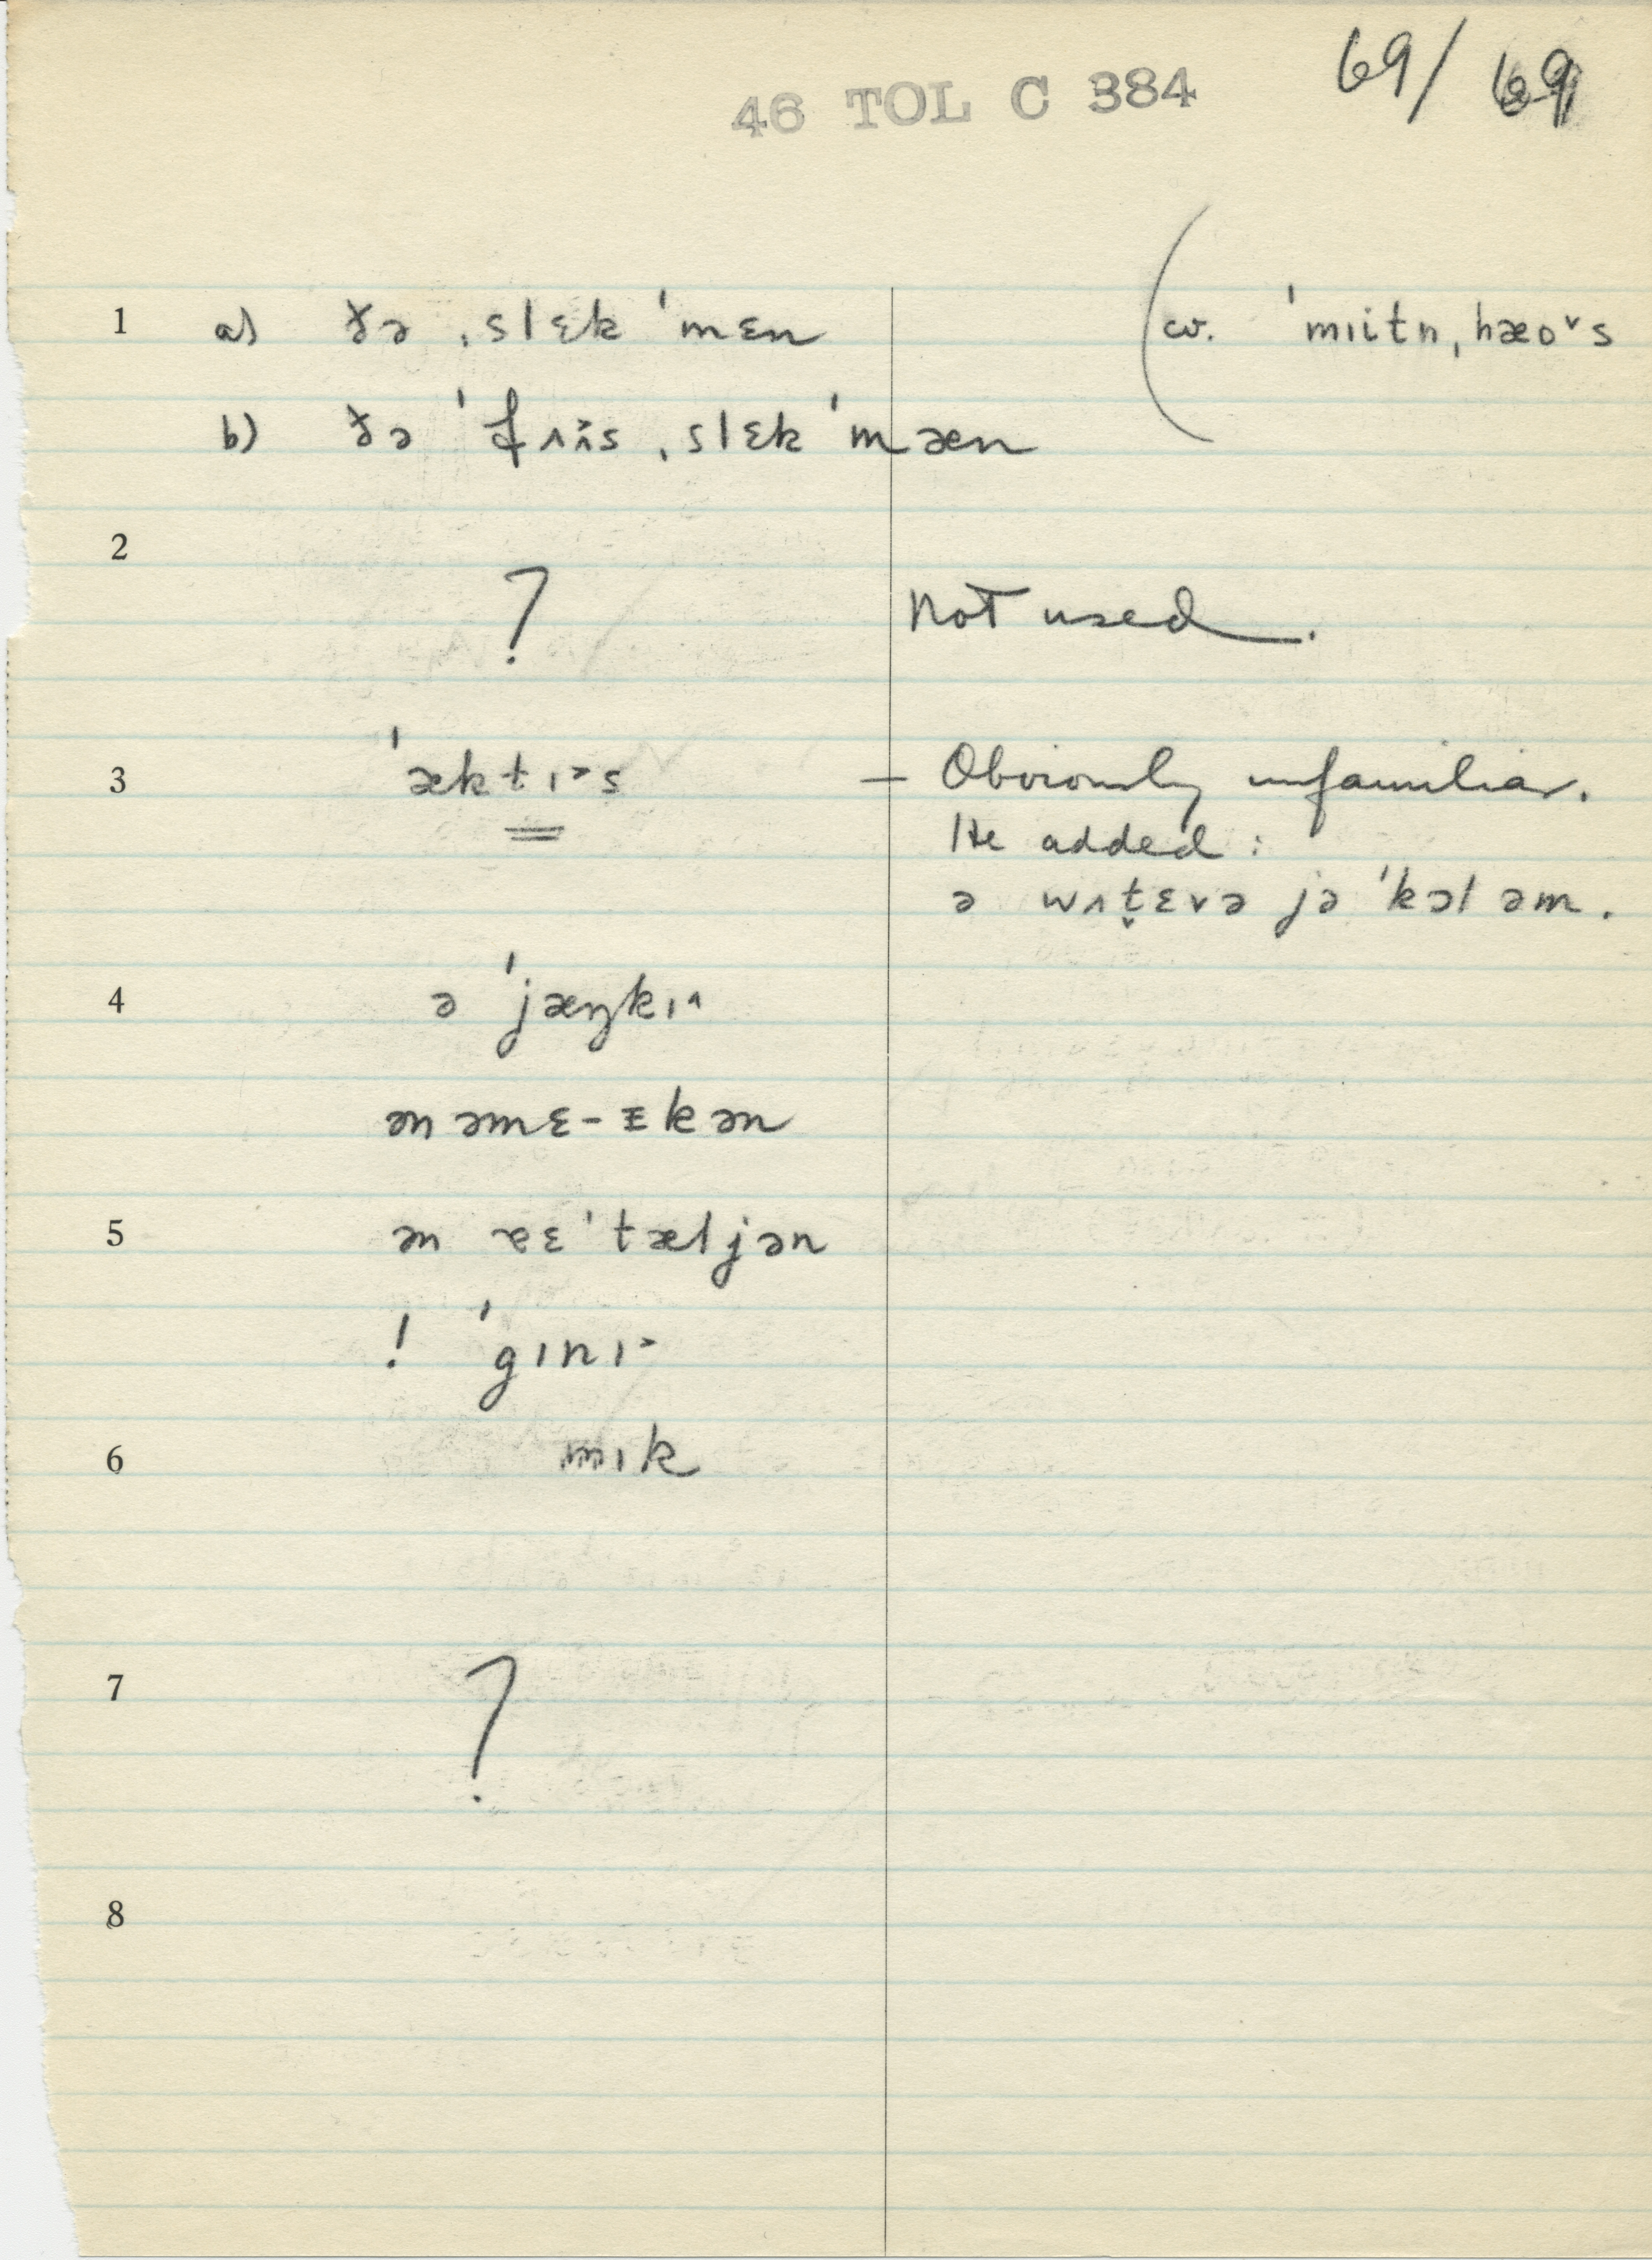 46 TOL C 384 69/ 69
1 a) ðə ˌslɛk ˈmɛn (cv. ˈmɪitn̩ˌhæoˇs
b) ðə ˈfʌɪs ˌslɛk ˈmæn
2
? Not used.
3 ˈæktɪ˃s — Obviously unfamiliar.
He added:
ə wʌt̬ɛvə jə ˈkɔl əm.
4 ə ˈjæŋkɪ˄
ən əmɛ-ɪkən
5 ən ɐɛˈtæljən
! ˈgɪnɪ˃
6 mɪk
7 ?
8